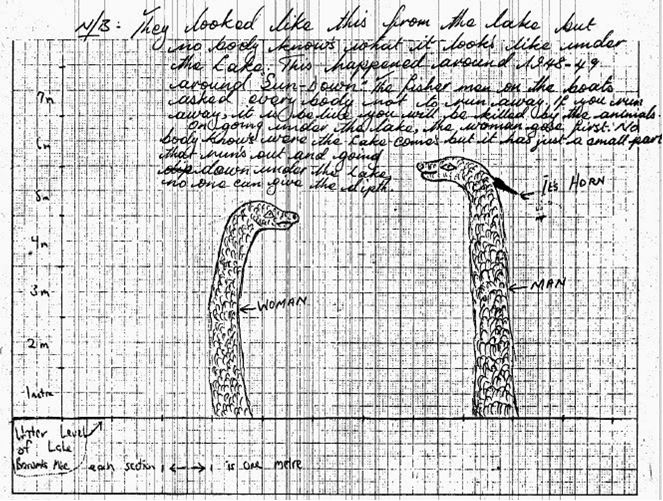 N/B: They looked like this from the lake but
no body knows what it looks like under
the Lake. This happened around 1948-49
around Sun-Down. The fisher men on the boats
asked every body not to run away, If you run
away, it will be like you will be killed by the animals.
On going under the lake, the woman goes first. No
body knows were the Lake comes but it has just a small part
that runs out and going
down under the Lake
no one can give the dipth.
7m
6m
5m
4m
3m
2m
1metre
ITS HORN
MAN
WOMAN
Water Level
of Lake
each section is one metre